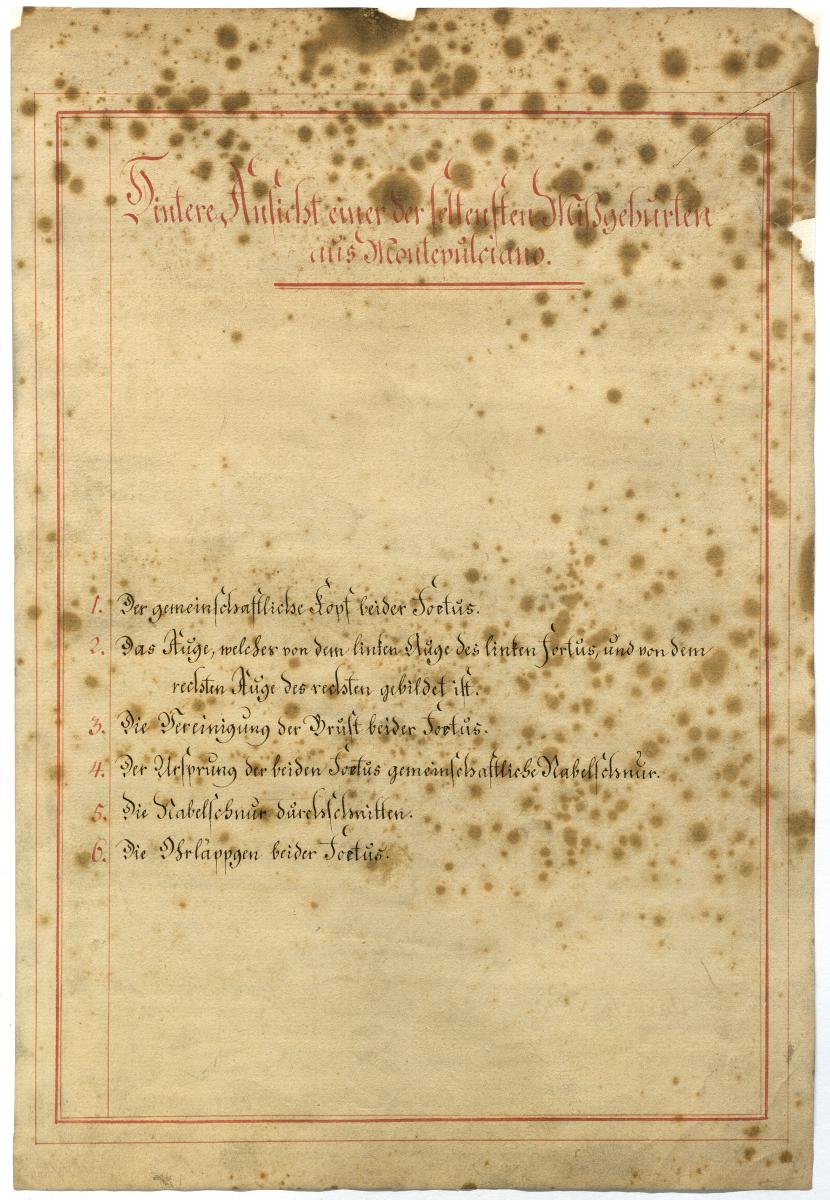 Hintere Ansicht einer der seltensten Mißgeburten
aus Montepulciano.
1. Der gemeinschaftliche Kopf beider Foetus.
2. Das Auge, welches von dem linken Auge des linken Foetus, und von dem
rechten Auge des rechten gebildet ist.
3. Die Vereinigung der Brust beider Foetus.
4. Der Ursprung der beiden Foetus gemeinschaftliche Nabelschnur.
5. Die Nabelschnur durchschnitten.
6. Die Ohrläppgen beider Foetus.